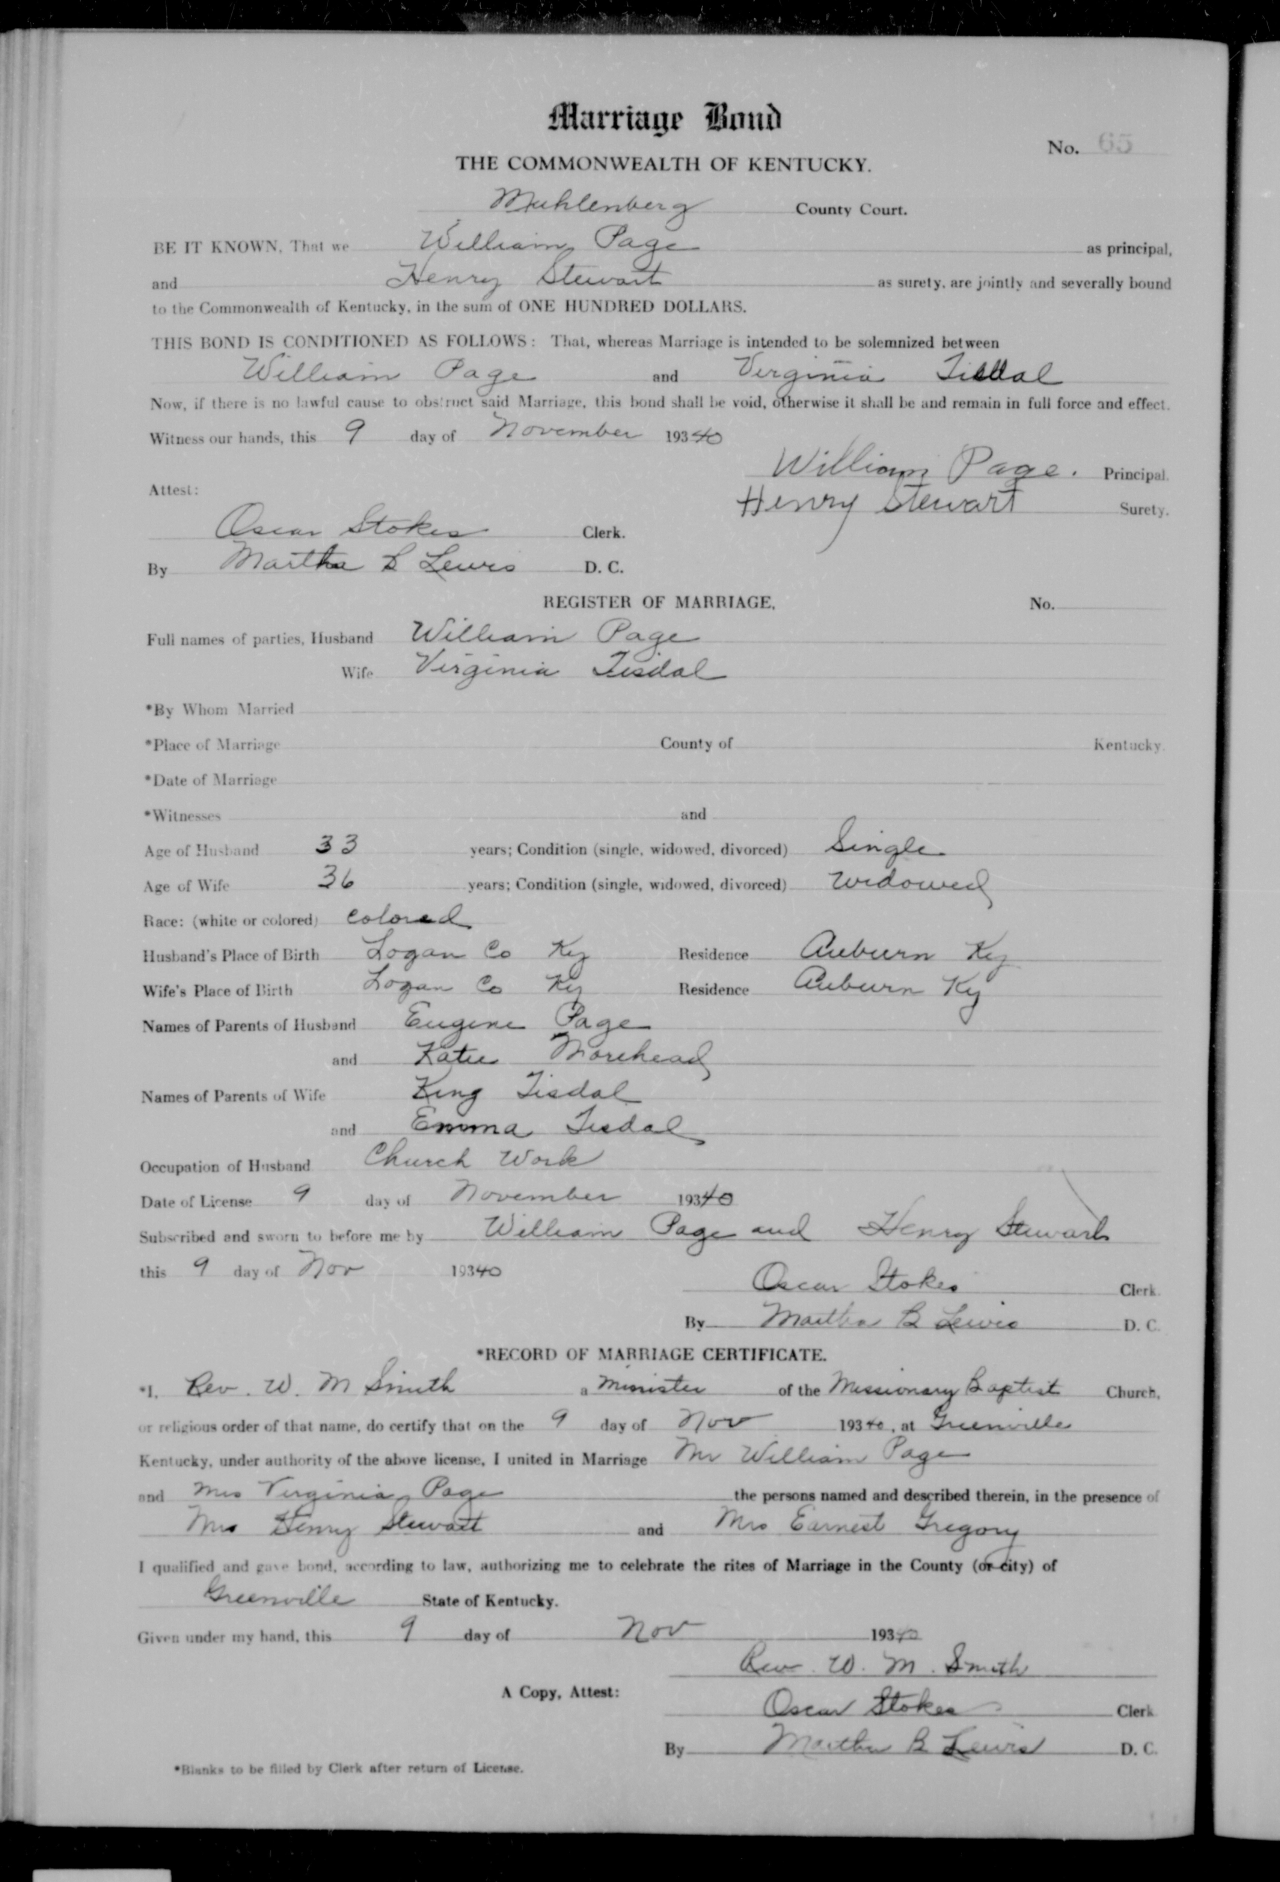 Marriage Bond
No. 65
THE COMMONWEALTH OF KENTUCKY.
Muhlenberg County Court.
BE IT KNOWN, That we William Page as principal,
and Henry Stewart as surety, are jointly and severally bound
to the Commonwealth of Kentucky, in the sum of ONE HUNDRED DOLLARS.
THIS BOND IS CONDITIONED AS FOLLOWS: That, whereas Marriage is intended to be solemnized between
William Page and Virginia Tisdal
Now, if there is no lawful cause to obstruct said Marriage, this bond shall be void, otherwise it shall be and remain in full force and effect.
Witness our hands, this 9 day of November 19340
William Page. Principal.
Attest:
Henry Stewart Surety.
Oscar Stokes Clerk.
By Martha B Lewis D. C.
REGISTER OF MARRIAGE, No.
Full names of parties, Husband William Page
Wife Virginia Tisdal
*By Whom Married
*Place of Marriage County of Kentucky.
*Date of Marriage
*Witnesses and
Age of Husband 33 years; Condition (single, widowed, divorced) Single
Age of Wife 36 years; Condition (single, widowed, divorced) Widowed
Race: (white or colored) colored
Husband's Place of Birth Logan Co Ky Residence Auburn Ky
Wife's Place of Birth Logan Co Ky Residence Auburn Ky
Names of Parents of Husband Eugene Page
and Katie Morehead
Names of Parents of Wife King Tisdal
and Emma Tisdal
Occupation of Husband Church Work
Date of License 9 day of November 19340
Subscribed and sworn to before me by William Page and Henry Stewart
this 9 day of Nov 19340
Oscar Stokes Clerk.
By Martha B Lewis D. C.
*RECORD OF MARRIAGE CERTIFICATE.
*I, Rev. W. M Smith a Minister of the Missionary Baptist Church,
or religious order of that name, do certify that on the 9 day of Nov 19340, at Greenville
Kentucky, under authority of the above license, I united in Marriage Mr William Page
and Mrs Virginia Page the persons named and described therein, in the presence of
Mrs Henry Stewart and Mrs Earnest Gregory
I qualified and gave bond, according to law, authorizing me to celebrate the rites of Marriage in the County (or city) of
Greenville State of Kentucky.
Given under my hand, this 9 day of Nov 19340
Rev. W. M. Smith
A Copy, Attest:
Oscar Stokes Clerk
By Martha B Lewis D. C.
*Blanks to be filled by Clerk after return of License.